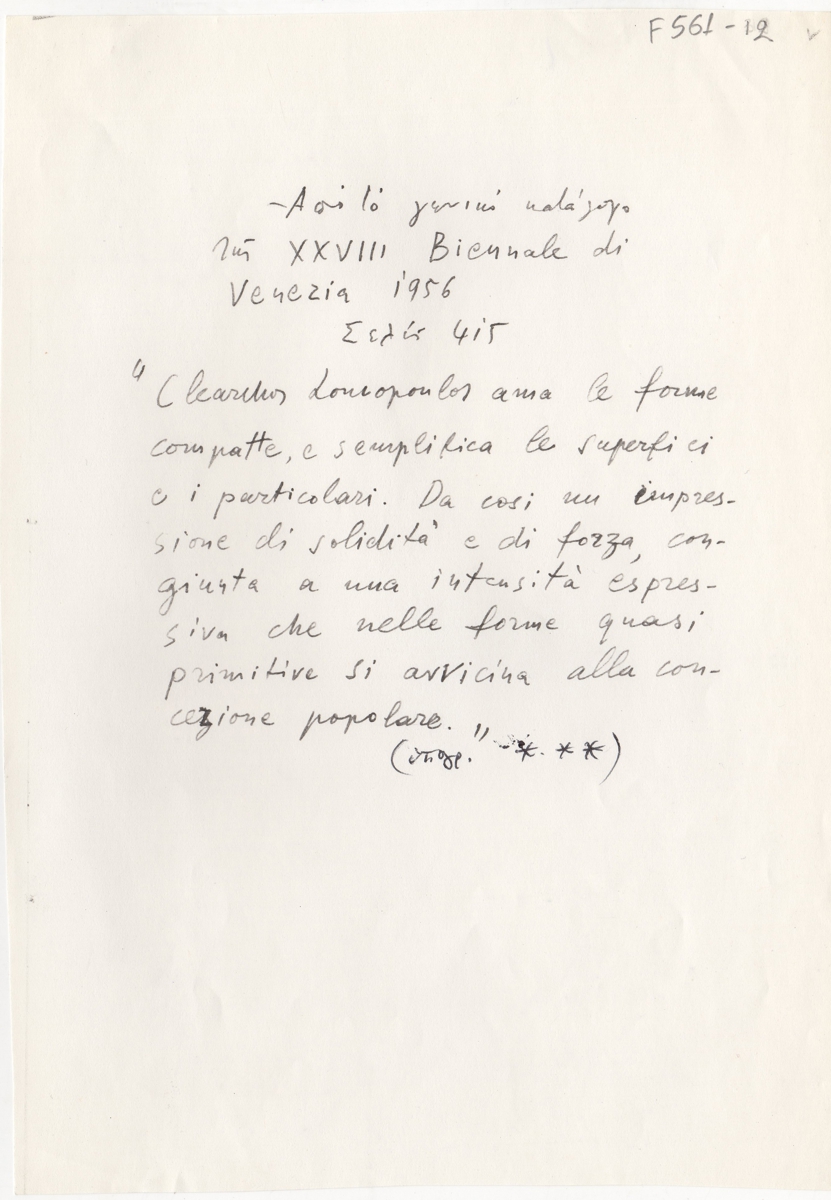 F561-12
-Από τό γενικό κατάλογο
τῆς XXVIII Biennale di
Venezia 1956
Σελίς 415
"Clearchos Loucopoulos ama le forme
compatte, e semplifica le superfici
e i particolari. Da cosi un impres-
sione di solidità e di forza, con-
giunta a una intensità espres-
siva che nelle forme quasi
primitive si avvicina alla con-
cezione popolare."
(ὑπογρ. * * *)